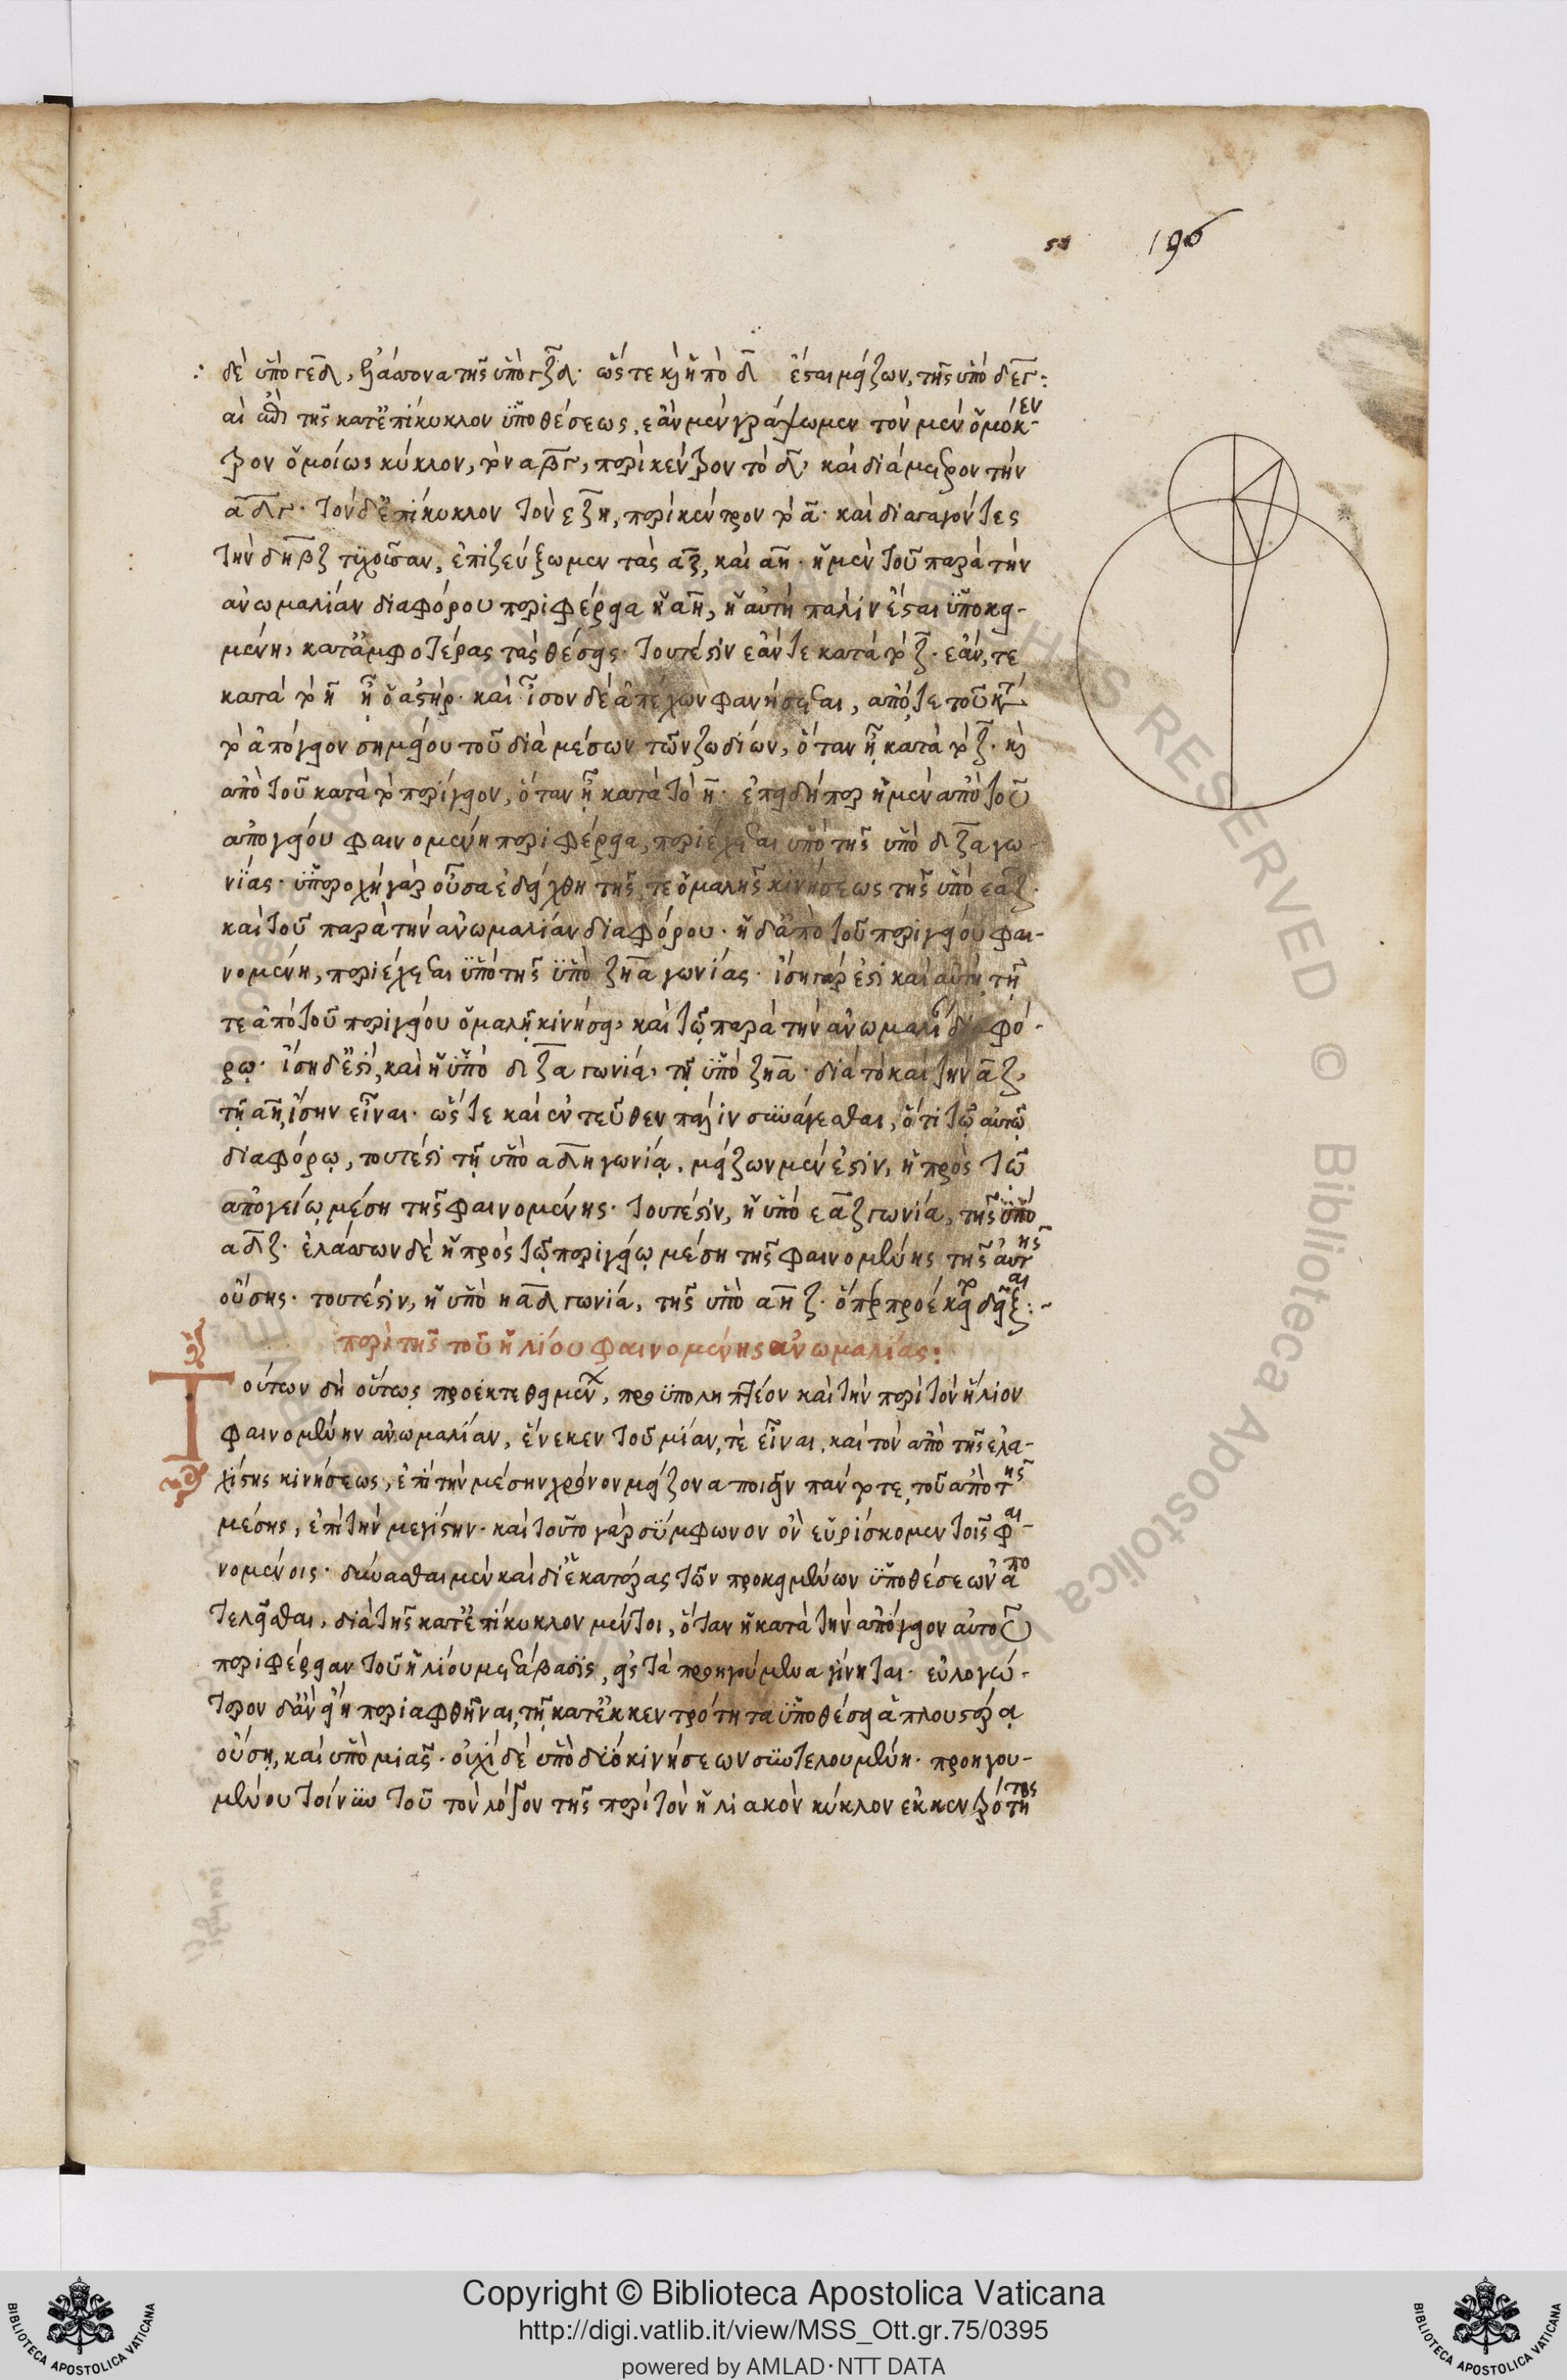 196
δὲ ὑπὸ γεδ, ἐλάττονα τῆς ὑπὸ γζδ. ὥστε καὶ ἡ πὸ δ ἔσται μείζων, τῆς ὑπὸ δεγ:
αὶ ἐπὶ τῆς κατ' ἐπίκυκλον ὑποθέσεως, ἐὰν μὲν γράψωμεν τὸν μὲν ὁμόκεν-
τρον ὁμοίως κύκλον, τὸν αβγ, περὶ κέντρον τὸ δ, καὶ διάμετρον τὴν
αδγ. τὸν δ' ἐπίκυκλον τὸν εζη, περὶ κέντρον τὸ α. καὶ διαγαγόντες
τὴν δηβζ τυχοῦσαν, ἐπιζεύξωμεν τὰς αζ, καὶ αη. ἡ μὲν τοῦ παρὰ τὴν
ἀνωμαλίαν διαφόρου περιφέρεια ἡ αη, ἡ αὐτὴ πάλιν ἔσται ὑποκει-
μένη, κατ' ἀμφοτέρας τὰς θέσεις. τουτέστιν ἐάν τε κατὰ τὸ ζ. ἐάν, τε
κατὰ τὸ η ᾖ ὁ ἀστήρ. καὶ ἴσον δὲ ἀπέχων φανήσεται, ἀπό τε τοῦ κατὰ
τὸ ἀπόγειον σημείου τοῦ διὰ μέσων τῶν ζωδίων, ὅταν ᾖ κατὰ τὸ ζ. καὶ
ἀπὸ τοῦ κατὰ τὸ περίγειον, ὅταν ᾖ κατὰ τὸ η. ἐπειδήπερ ἡ μὲν ἀπὸ τοῦ
ἀπογείου φαινομένη περιφέρεια, περιέχεται ὑπὸ τῆς ὑπὸ δζα γω-
νίας. ὑπεροχὴ γὰρ οὖσα ἐδείχθη τῆς, τε ὁμαλῆς κινήσεως τῆς ὑπὸ εαζ.
καὶ τοῦ παρὰ τὴν ἀνωμαλίαν διαφόρου. ἡ δ' ἀπὸ τοῦ περιγείου φαι-
νομένη, περιέχεται ὑπὸ τῆς ὑπὸ ζηα γωνίας. ἴση γάρ ἐστι καὶ αὐτὴ τῇ
τε ἀπὸ τοῦ περιγείου ὁμαλῇ κινήσει, καὶ τῷ παρὰ τὴν ἀνωμαλί διαφό-
ρῳ. ἴση δ' ἐστί, καὶ ἡ ὑπὸ διζα γωνία, τῇ ὑπὸ ζηα. διὰ τὸ καὶ τὴν αζ,
τῇ αη, ἴσην εἶναι. ὥστε καὶ ἐντεῦθεν πάλιν συνάγεσθαι, ὅτι τῷ αὐτῷ
διαφόρῳ, τουτέστι τῇ ὑπὸ αδη γωνίᾳ, μείζων μέν ἐστιν, ἡ πρὸς τῷ
ἀπογείῳ μέση τῆς φαινομένης. τουτέστιν, ἡ ὑπὸ εαζ γωνία, τῆς ὑπὸ
αδζ. ἐλάσσων δὲ ἡ πρὸς τῷ περιγείῳ μέση τῆς φαινομένης τῆς αὐτῆς
οὔσης. τουτέστιν, ἡ ὑπὸ ηαδ γωνία, τῆς ὑπὸ αηζ. ὅπερ προέκειτο δεῖξαι:-
περὶ τῆς τοῦ ἡλίου φαινομένης ἀνωμαλίας:
Τούτων δὴ οὕτως προεκτεθειμένων, προϋποληπτέον καὶ τὴν περὶ τὸν ἥλιον
φαινομένην ἀνωμαλίαν, ἕνεκεν τοῦ μίαν, τὲ εἶναι, καὶ τὸν ἀπὸ τῆς ἐλα-
χίστης κινήσεως, ἐπὶ τὴν μέσην χρόνον μείζονα ποιεῖν πάντοτε, τοῦ ἀπὸ τῆς
μέσης, ἐπὶ τὴν μεγίστην. καὶ τοῦτο γὰρ σύμφωνον ὂν εὑρίσκομεν τοῖς φαι-
νομένοις. δύνασθαι μὲν καὶ δι' ἑκατέρας τῶν προκειμένων ὑποθέσεων ἀπο
τελεῖσθαι, διὰ τῆς κατ' ἐπίκυκλον μέντοι, ὅταν ἡ κατὰ τὴν ἀπόγειον αὐτοῦ
περιφέρειαν τοῦ ἡλίου μετάβασις, εἰς τὰ προηγούμενα γίνηται. εὐλογώ-
τερον δ' ἂν εἴη περιαφθῆναι, τῇ κατ' ἐκκεντρότητα ὑποθέσει ἁπλουστέρᾳ
οὔσῃ, καὶ ὑπὸ μιᾶς. οὐχὶ δὲ ὑπὸ δύο κινήσεων συντελουμένη. προηγου-
μένου τοίνυν τοῦ τὸν λόγον τῆς περὶ τὸν ἡλιακὸν κύκλον ἐκκεντρότητος
Copyright © Biblioteca Apostolica Vaticana
http://digi.vatlib.it/view/MSS_Ott.gr.75/0395
powered by AMLAD·NTT DATA
BIBLIOTECA APOSTOLICA VATICANA
BIBLIOTECA APOSTOLICA VATICANA